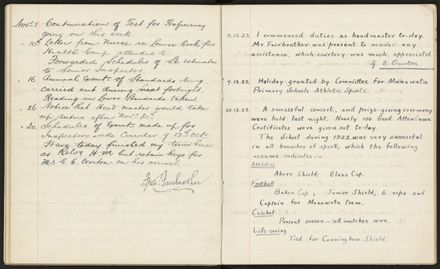 Nov. 5. Continuation of Test for Proficiency
going on this week
10 Letter from Nurse re Louise Cook for
Health Camp attended to
Forwarded Schedules of So estimates
to Senior Inspector
16 Annual Exam of Standards being
carried out during next fortnight.
Reading in Lower Standards taken.
26 Notice that Head master would take
up duties after Nov. 30th
30 Schedules of Exam. made up for
Inspectors vide Circular of 12th Oct.
Have today finished my term here
as Relvg H. M. but retain keys for
Mr G. E. Overton on his arrival
Fairbrother
3.12.23. I commenced duties as headmaster to-day.
Mr Fairbrother was present to render any
assistance, which courtesy was much appreciated.
G. E. Overton
7.12.23. Holiday granted by Committee for Manawatu
Primary Schools Athletic Sports.
20.12.23. A successful concert, and prize-giving ceremony
were held last night. Nearly 100 Good Attendance
Certificates were given out to-day.
The School during 1923 was very successful
in all branches of sport, which the following
resume indicates:-
Athletics
Akers Shield; Glaxo Cup.
Football
Baker Cup; Junior Shield; 6 reps and
Captain for Manawatu team.
Cricket
Present season — all matches won.
Life-saving
Tied for Cunningham Shield.